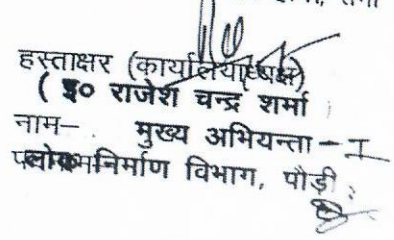 हस्ताक्षर (कार्यालयाध्यक्ष)
( इ० राजेश चन्द्र शर्मा
नाम— मुख्य अभियन्ता - I
लोक निर्माण विभाग, पौड़ी